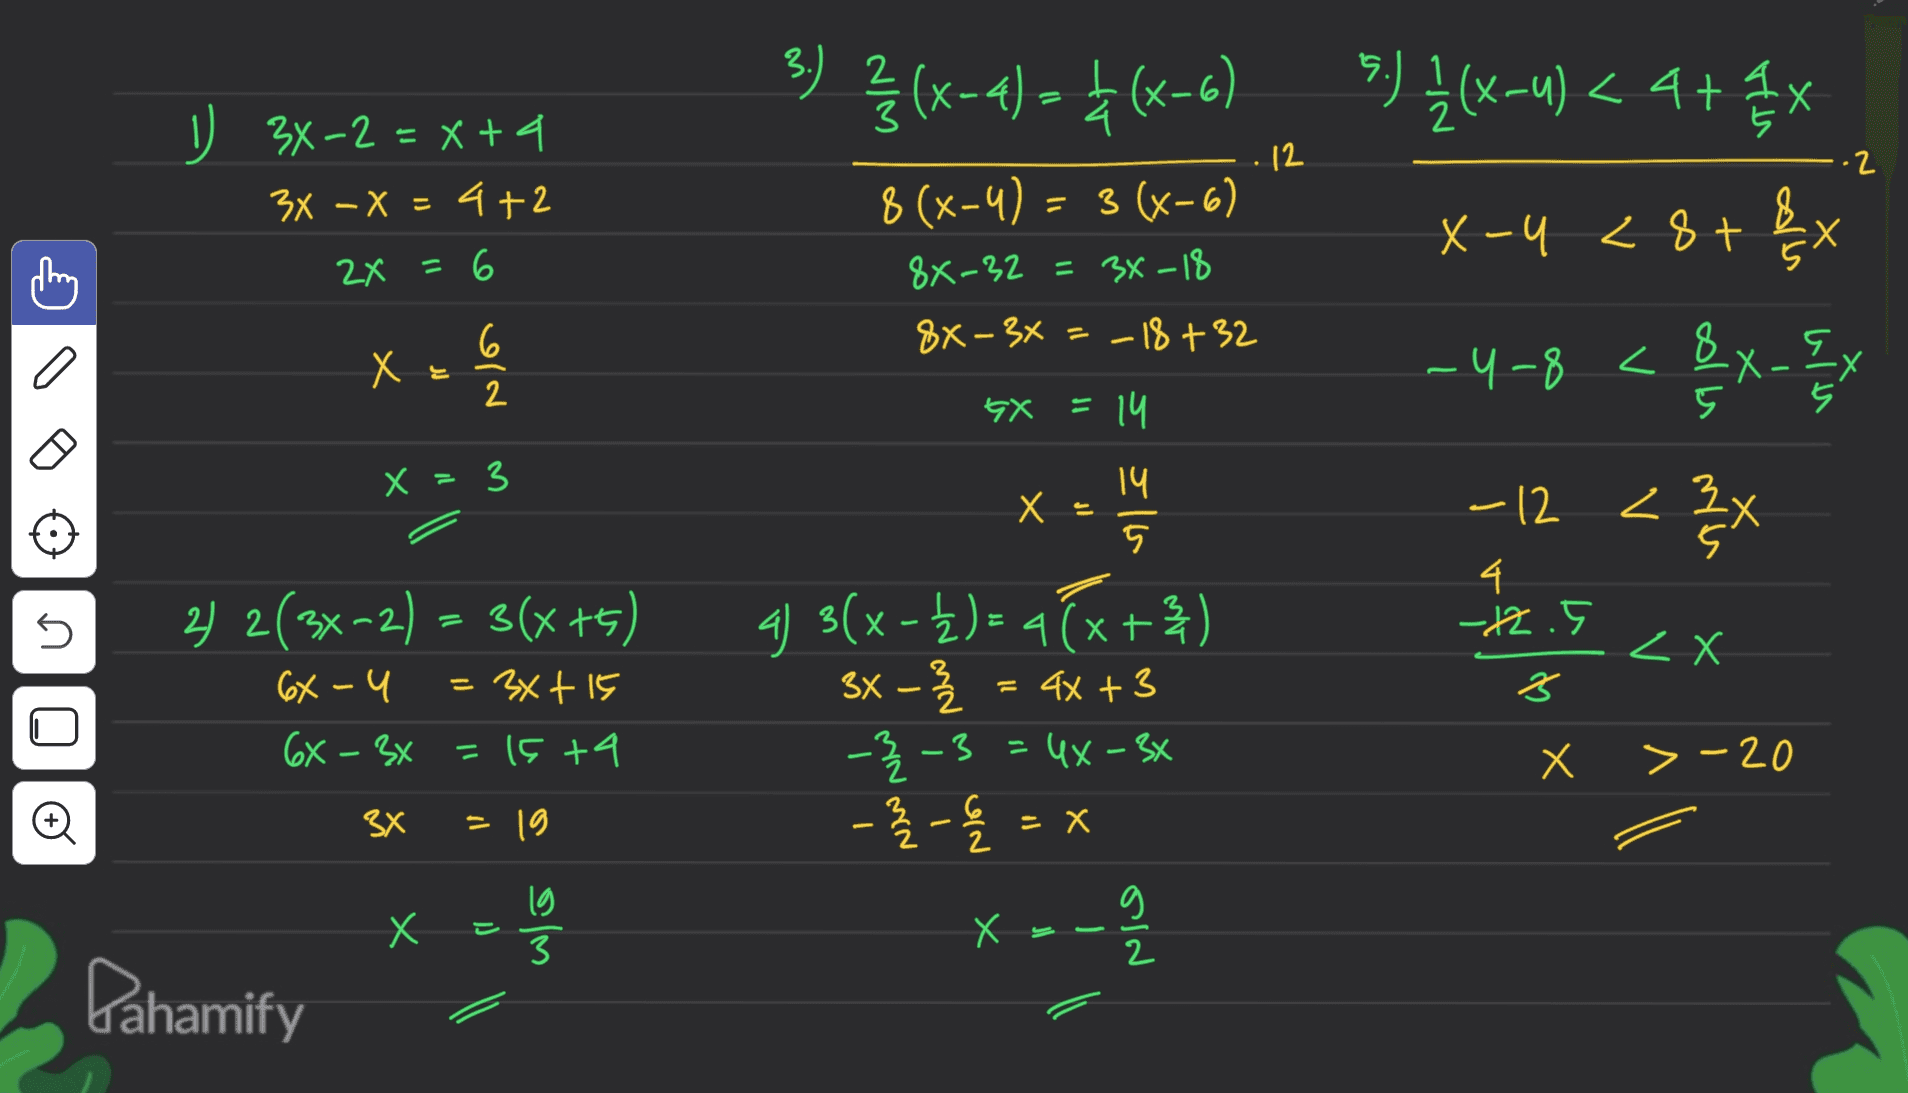 1) 3x - 2 = x + 4
3x - x = 4 + 2
2x = 6
x = 6/2
x = 3
2) 2(3x - 2) = 3(x + 5)
6x - 4 = 3x + 15
6x - 3x = 15 + 4
3x = 19
x = 19/3
3.) 2/3 (x - 4) = 1/4 (x - 6)
. 12
8 (x - 4) = 3 (x - 6)
8x - 32 = 3x - 18
8x - 3x = -18 + 32
5x = 14
x = 14/5
4) 3(x - 1/2) = 4(x + 3/4)
3x - 3/2 = 4x + 3
-3/2 - 3 = 4x - 3x
-3/2 - 6/2 = x
x = -9/2
5.) 1/2 (x - 4) < 4 + 4/5 x
. 2
x - 4 < 8 + 8/5 x
-4 - 8 < 8/5 x - 5/5 x
-12 < 3/5 x
4
-12 . 5 / 3 < x
x > -20
Pahamify